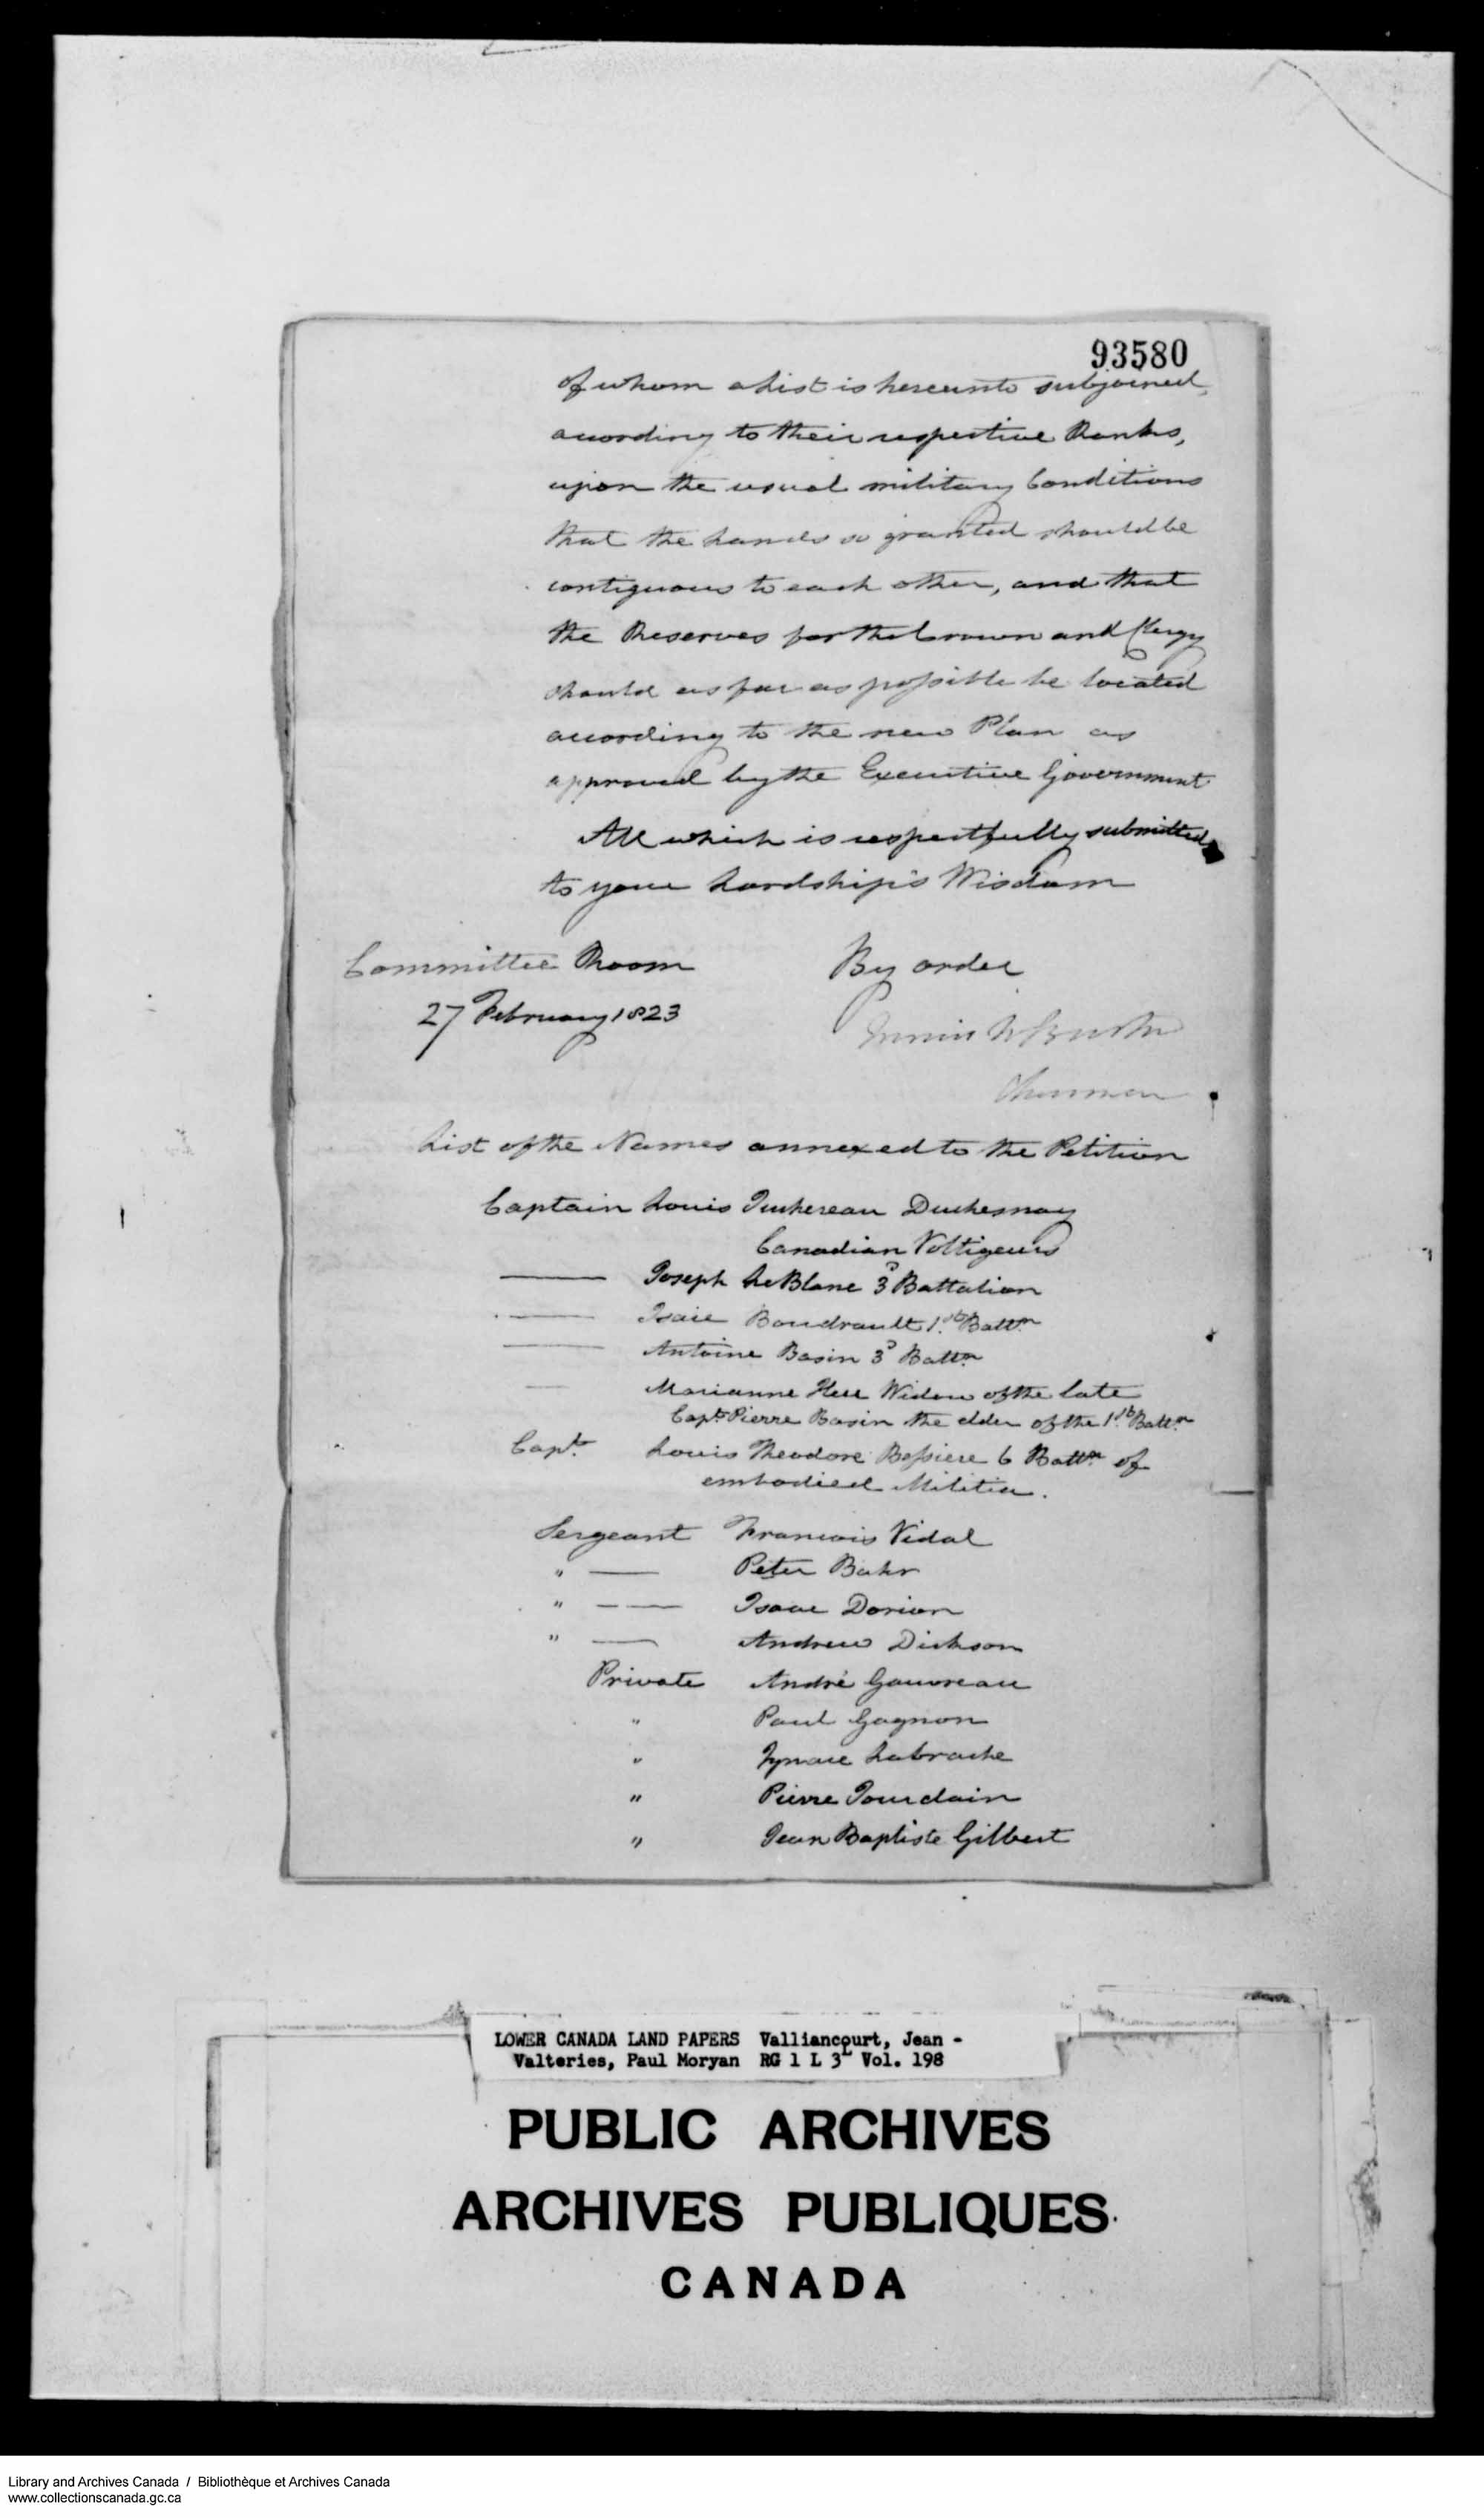 93580
of whom a List is hereunto subjoined,
according to their respective Ranks,
upon the usual military Conditions
that the Lands so granted should be
contiguous to each other, and that
the Reserves for the Crown and Clergy
should as far as possible be located
according to the new Plan as
approved by the Executive Government
All which is respectfully submitted
to your Lordship's Wisdom
Committee Room
By order
27 February 1823
Chairman
List of the Names annexed to the Petition
Captain Louis Juchereau Duchesnay
Canadian Voltigeurs
—— Joseph LeBlanc 3d Battalion
—— Isaie Boudrault 1st Battn
—— Antoine Bazin 3d Battn
— Marianne Widow of the late
Capt. Pierre Bazin the elder of the 1st Battn
Capt. Louis Theodore Bessiere 6 Battn of
embodied Militia.
Sergeant Francois Vidal
" — Peter Bahr
" — — Isaac Dorion
" — Andrew Dickson
Private André Gauvreau
" Paul Gagnon
" Ignace Labrache
" Pierre Jourdain
" Jean Baptiste Gilbert
LOWER CANADA LAND PAPERS Valliancourt, Jean -
Valteries, Paul Moryan RG 1 L 3L Vol. 198
PUBLIC ARCHIVES
ARCHIVES PUBLIQUES
CANADA
Library and Archives Canada / Bibliothèque et Archives Canada
www.collectionscanada.gc.ca